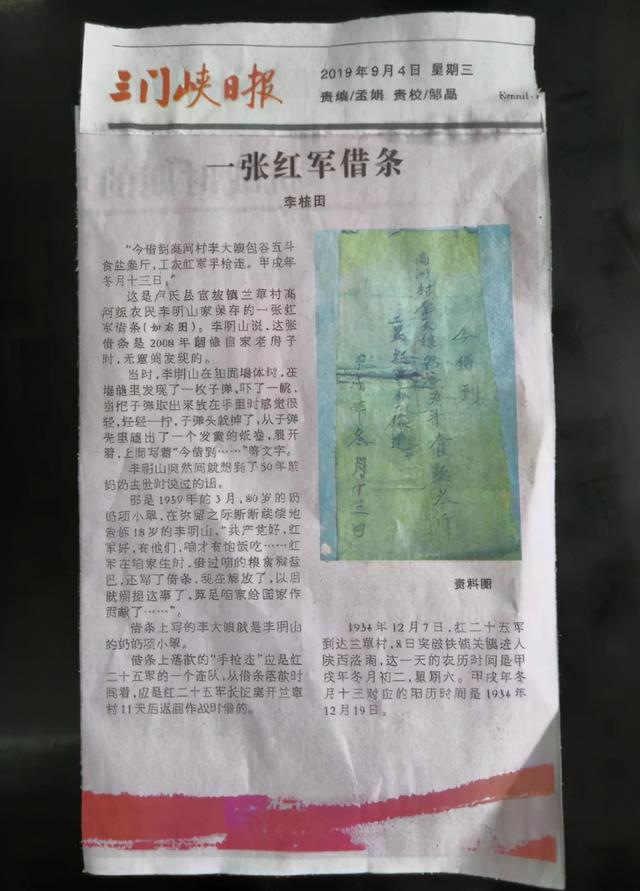 三门峡日报
2019年9月4日 星期三
责编/孟娟 责校/邬晶
一张红军借条
李桂田
“今借到高河村李大娘包谷五斗
食盐叁斤,工农红军手枪连。甲戌年
冬月十三日。”
这是卢氏县官坡镇兰草村高
河组农民李明山家保存的一张红
军借条(如右图)。李明山说,这张
借条是2008年翻修自家老房子
时,无意间发现的。
当时,李明山在加固墙体时,在
墙缝里发现了一枚子弹,吓了一跳,
当把子弹取出来放在手里时感觉很
轻,轻轻一拧,子弹头就掉了,从子弹
壳里磕出了一个发黄的纸卷,展开
看,上面写着“今借到……”等文字。
李明山突然间就想到了50年前
奶奶去世时说过的话。
那是1959年的3月,80岁的奶
奶项小翠,在弥留之际断断续续地
告诉18岁的李明山,“共产党好,红
军好,有他们,咱才有饱饭吃……红
军在咱家生时,借过咱的粮食和盐
巴,还写了借条,现在解放了,以后
就别提这事了,算是咱家给国家作
贡献了……”。
借条上写的李大娘就是李明山
的奶奶项小翠。
借条上落款的“手枪连”应是红
二十五军的一个连队,从借条落款时
间看,应是红二十五军长征离开兰草
村11天后返回作战时借的。
今借到
高河村李大娘包谷五斗食盐叁斤
工农红军手枪连
月十三日
资料图
1934年12月7日,红二十五军
到达兰草村,8日突破铁锁关镇进入
陕西洛南,这一天的农历时间是甲
戌年冬月初二,星期六。甲戌年冬
月十三对应的阳历时间是1934年
12月19日。